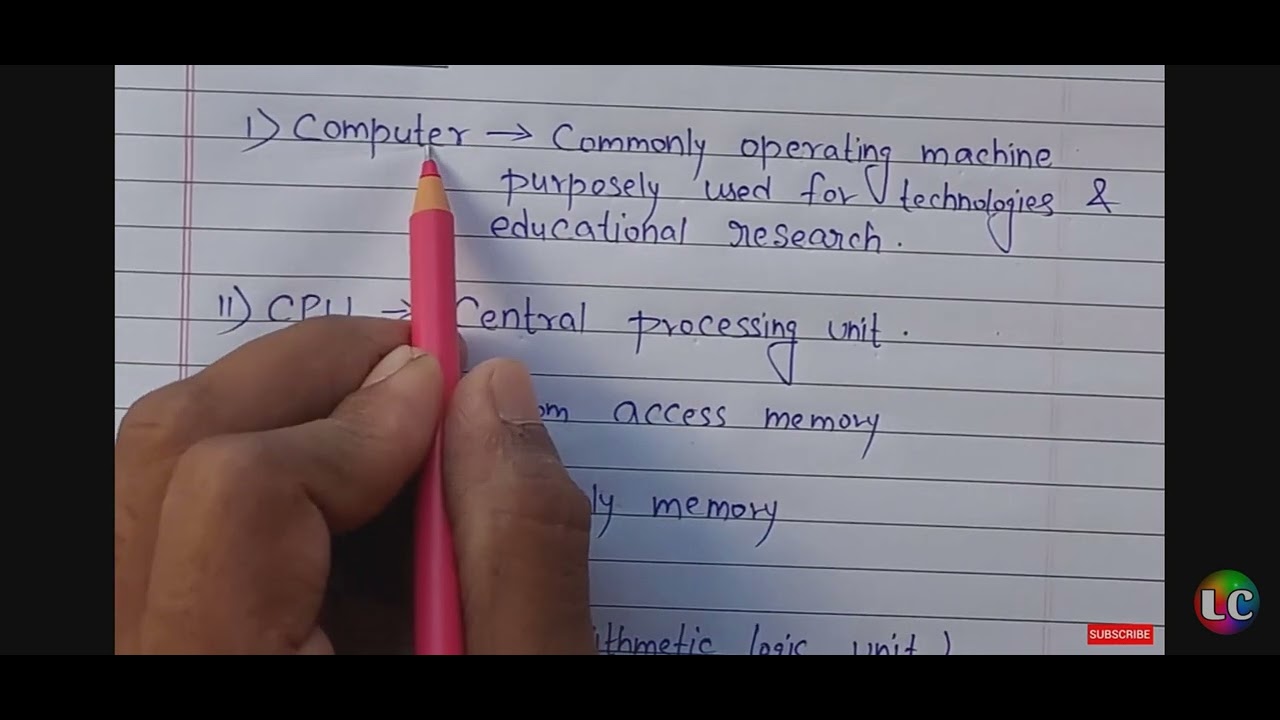 1) Computer → Commonly operating machine
purposely used for technologies &
educational research.
11) CPU → Central processing unit.
access memory
memory
logic unit)
LC
SUBSCRIBE